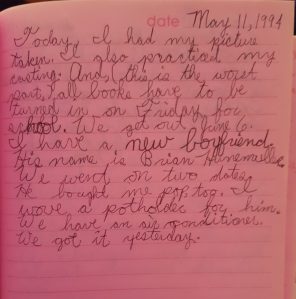 date May 11, 1994
Today, I had my picture
taken. I also practiced my
casting. And, this is the worst
part, all books have to be
turned in on Friday for
school. We get out June 6.
I have a new boyfriend.
His name is Brian
We went on two dates.
He bought me pop, too. I
wove a potholder for him.
We have an air conditioner.
We got it yesterday.